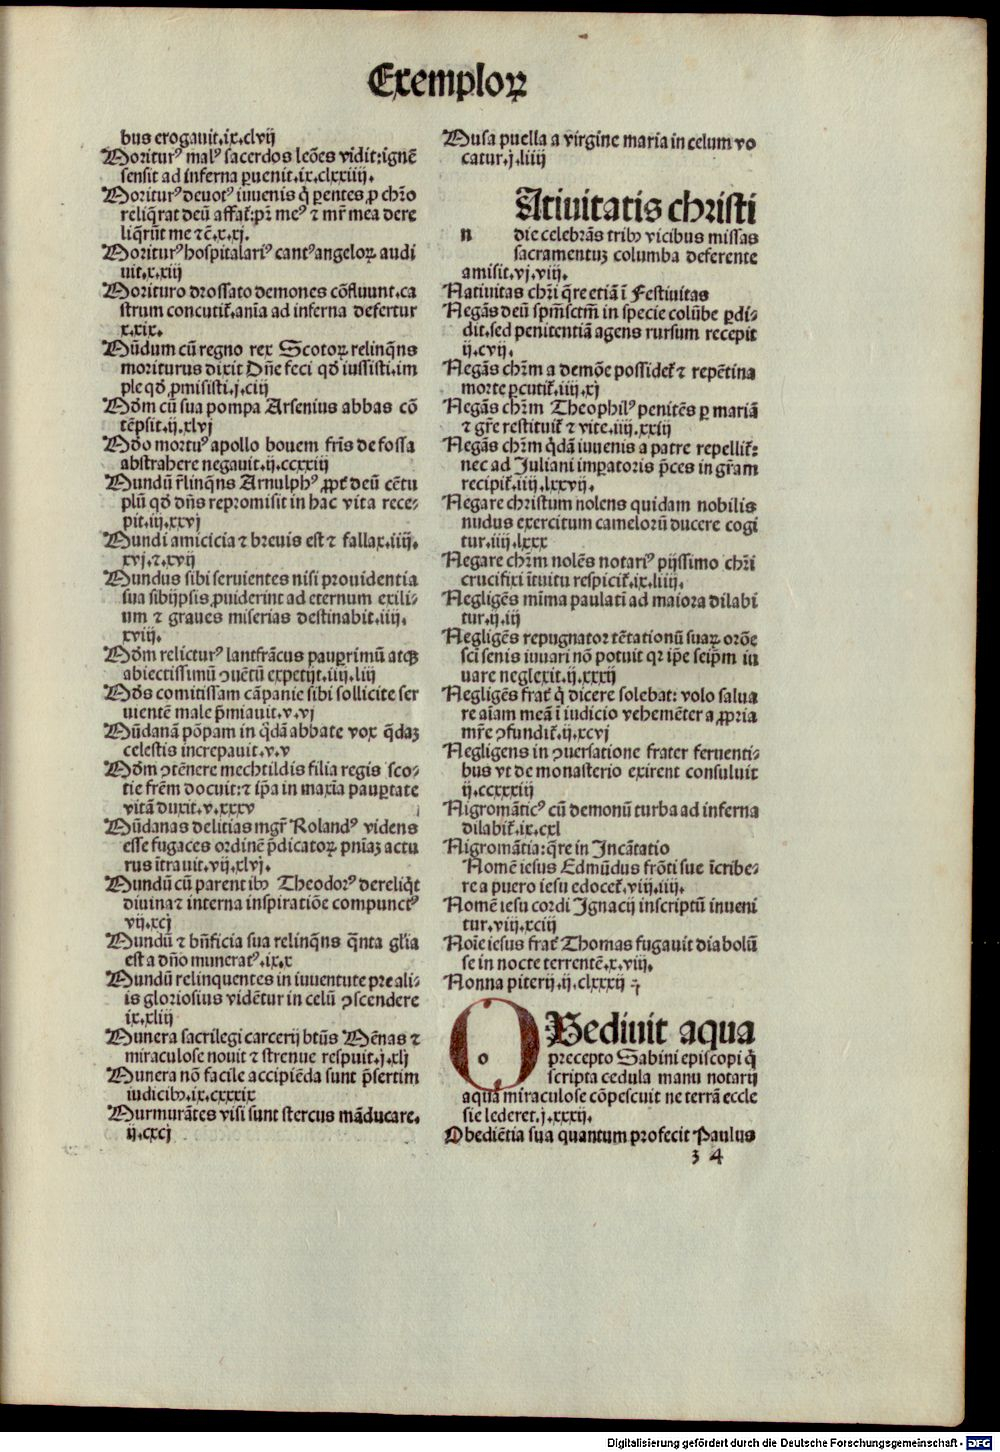 Exemploꝝ
bus erogauit.ix.clvij
Moritur⁹ mal⁹ sacerdos leões vidit:ignē
sensit ad inferna ꝑuenit.ix.clxxiiij.
Moritur⁹ deuot⁹ iuuenis q̄ ꝑentes ꝓ chr̄o
reliq̄rat deū affat̄:pr̄ me⁹ ⁊ mr̄ mea dere
liq̄rūt me ⁊c̄.x.xj.
Moritur⁹ hospitalari⁹ cant⁹ angeloꝝ audi
uit.x.xiij
Morituro drossato demones cōfluunt.ca
strum concutiūt̄.anīa ad inferna defertur
x.xix.
Mūdum cū regno rex Scotoꝝ relinq̄ns
moriturus dixit Dn̄e feci qd̓ iussisti.im
ple qd̓ ꝓmisisti.j.ciij
Mōdm cū sua pompa Arsenius abbas cō
tēpsit.ij.xlvj
Mōdo mortu⁹ apollo bouem fr̄is de fossa
abstrahere negauit.ij.ccxxiij
Mundū r̄linq̄ns Arnulph⁹ ꝓpt̄ deū cētu
plū qd̓ dn̄s repromisit in hac vita rece⸗
pit.iij.xxvj
Mundi amicicia ⁊ breuis est ⁊ fallax.iiij.
xvj.⁊.xvij
Mundus sibi seruientes nisi prouidentia
sua sibijpsis ꝓuiderint ad eternum exili⸗
um ⁊ graues miserias destinabit.iiij.
xviij.
Mōdm relictur⁹ lantfrācus pauꝑrimū atqꝫ
abiectissimū ꝯuētū expetijt.iiij.liij
Mōds comitissam cāpanie sibi sollicite ser
uientē male p̄miauit.v.vj
Mūdanā pōpam in q̄dā abbate vox q̄daꝫ
celestis increpauit.v.v
Mōdm ꝯtēnere mechtildis filia regis sco⸗
tie frēm docuit:⁊ ip̄a in maxīa pauꝑtate
vitā duxit.v.xxxv
Mūdanas delitias mgr̄ Roland⁹ videns
esse fugaces ordinē p̄dicatoꝝ pnīaꝫ actu
rus ītrauit.vij.xlvj.
Mundū cū parentibꝫ Theodor⁹ dereliq̄t
diuina ⁊ interna inspiratiōe compunct⁹
vij.xcj
Mundū ⁊ bn̄ficia sua relinq̄ns q̄nta gl̄ia
est a dn̄o munerat⁹.ix.x
Mundū relinquentes in iuuentute pre ali⸗
is gloriosius vidētur in celū ꝯscendere
ix.xliij
Munera sacrilegi carcerij bt̄us Mēnas ⁊
miraculose nouit ⁊ strenue respuit.j.xlj
Munera nō facile accipiēda sunt p̄sertim
iudicibꝫ.ix.cxxxix
Murmurātes visi sunt stercus māducare.
ij.cxcj
Musa puella a virgine maria in celum vo
catur.j.liiij
Ātiuitatis christi
n die celebrās tribꝫ vicibus missas
sacramentuꝫ columba deferente
amisit.vj.viij.
Natiuitas chr̄i q̄re etiā ī Festiuitas
Negās deū spm̄sctm̄ in specie colūbe ꝑdi⸗
dit.sed penitentiā agens rursum recepit
ij.cvij.
Negās chr̄m a demōe possidet̄ ⁊ repētina
morte ꝑcutit̄.iiij.xj
Negās chr̄m Theophil⁹ penitēs ꝑ mariā
⁊ gr̄e restituit̄ ⁊ vite.iiij.xxiij
Negās chr̄m q̄dā iuuenis a patre repellit̄:
nec ad Juliani imꝑatoris p̄ces in gr̄am
recipit̄.iiij.lxxvij.
Negare christum nolens quidam nobilis
nudus exercitum camelorū ducere cogi
tur.iiij.lxxx
Negare chr̄m nolēs notari⁹ pijssimo chr̄i
crucifixi ītuitu respicit̄.ix.liiij.
Negligēs mīma paulati ad maiora dilabi
tur.ij.iij
Negligēs repugnator tētationū suaꝝ orōe
sci senis iuuari nō potuit qꝛ ip̄e seip̄m iu
uare neglexit.ij.xxxij
Negligēs frat̄ q̄ dicere solebat: volo salua
re aīam meā ī iudicio vehemēter a ꝓpria
mr̄e ꝯfundit̄.ij.xcvj
Negligens in ꝯuersatione frater feruenti⸗
bus vt de monasterio exirent consuluit
ij.ccxxxiij
Nigromātic⁹ cū demonū turba ad inferna
dilabit̄.ix.cxl
Nigromātia:q̄re in Incātatio
Nomē iesus Edmūdus frōti sue īscribe⸗
re a puero iesu edocet̄.viij.iiij.
Nomē iesu cordi Jgnacij inscriptū inueni
tur.viij.xciij
Noīe iesus frat̄ Thomas fugauit diabolū
se in nocte terrentē.x.viij.
Nonna piterij.ij.clxxxij
OBediuit aqua
o precepto Sabini episcopi q̄
scripta cedula manu notarij
aquā miraculose cōpescuit ne terrā eccle
sie lederet.j.xxxij.
Obediētia sua quantum profecit Paulus
3 4
Digitalisierung gefördert durch die Deutsche Forschungsgemeinschaft - DFG